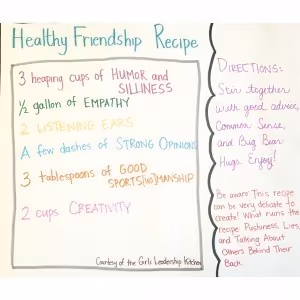 Healthy Friendship Recipe
3 heaping cups of HUMOR and
SILLINESS
½ gallon of EMPATHY
2 LISTENING EARS
A few dashes of STRONG OPINIONS
3 tablespoons of GOOD
SPORTS(wo)MANSHIP
2 cups CREATIVITY
Courtesy of the Girls Leadership Kitchen
DIRECTIONS:
Stir together
with good advice,
Common Sense,
and Big Bear
Hugs. Enjoy!
Be aware This recipe
can be very delicate to
create! What ruins the
recipe: Pushiness, Lies,
and Talking About
Others Behind Their
Back.